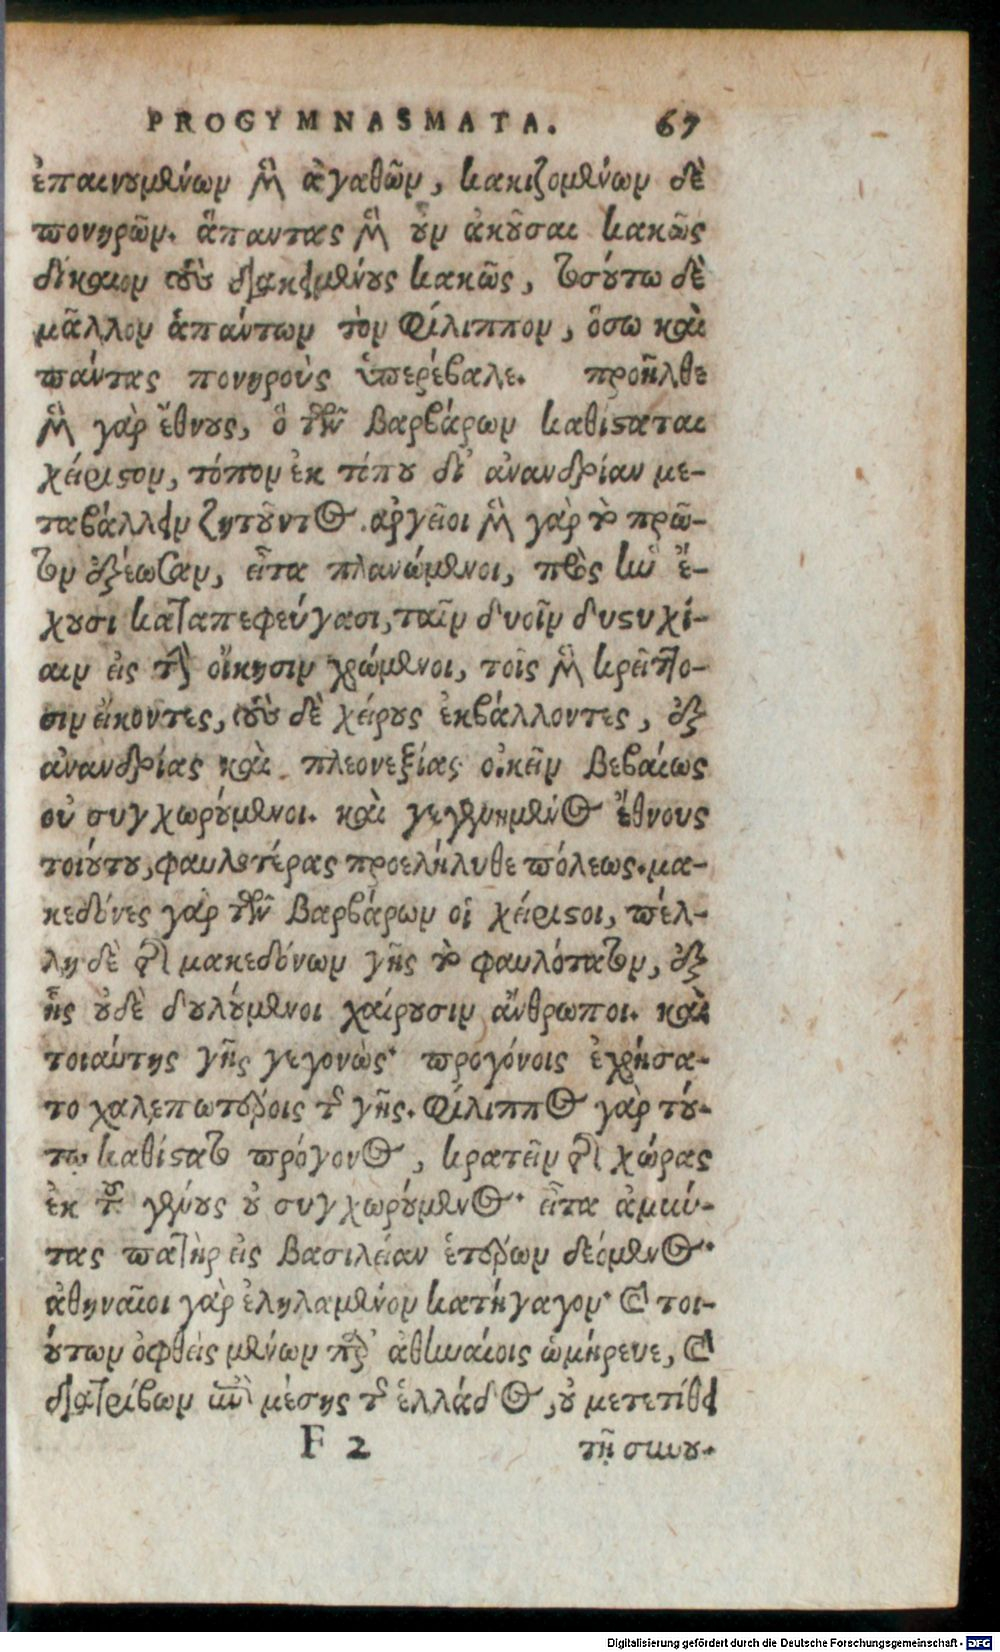 PROGYMNASMATA. 67
ἐπαινουμένων μὲν ἀγαθῶν, κακιζομένων δὲ
πονηρῶν. ἅπαντας μὲν οὖν ἀκοῦσαι κακῶς
δίκαιον τοὺς διακειμένους κακῶς, τοσούτω δὲ
μᾶλλον ἁπάντων τὸν Φίλιππον, ὅσω καὶ
πάντας πονηροὺς ὑπερέβαλε. προῆλθε
μὲν γὰρ ἔθνους, ὃ τῶν βαρβάρων καθίσταται
χείριστον, τόπον ἐκ τόπου δι' ἀνανδρίαν με-
ταβάλλειν ζητοῦντος. ἀργεῖοι μὲν γὰρ τὸ πρῶ-
τον ἐξέωσαν, εἶτα πλανώμενοι, πρὸς ἣν ἔ-
χουσι καταπεφεύγασι, ταῖν δυοῖν δυστυχί-
αιν εἰς τὴν οἴκησιν χρώμενοι, τοῖς μὲν κρείττο-
σιν εἴκοντες, τοὺς δὲ χείρους ἐκβάλλοντες, ἐξ
ἀνανδρίας καὶ πλεονεξίας οἰκεῖν βεβαίως
οὐ συγχωρούμενοι. καὶ γεγενημένος ἔθνους
τοιούτου, φαυλοτέρας προελήλυθε πόλεως. μα-
κεδόνες γὰρ τῶν βαρβάρων οἱ χείριστοι, πέλ-
λη δὲ τῆς μακεδόνων γῆς τὸ φαυλότατον, ἐξ
ἧς οὐδὲ δουλούμενοι χαίρουσιν ἄνθρωποι. καὶ
τοιαύτης γῆς γεγονὼς· προγόνοις ἐχρήσα-
το χαλεπωτέροις τῆς γῆς. Φίλιππος γὰρ τού-
τῳ καθίστατο πρόγονος, κρατεῖν τῆς χώρας
ἐκ τοῦ γένους οὐ συγχωρούμενος· εἶτα ἀμύν-
τας πατὴρ εἰς βασιλείαν ἑτέρων δεόμενος·
ἀθηναῖοι γὰρ ἐληλαμένον κατήγαγον· καὶ τοι-
ούτων ὀφθεὶς μένων παρ' ἀθηναίοις ὡμήρευε, καὶ
διατρίβων ἐν μέσης τῆς ἑλλάδος, οὐ μετετίθει
F 2 τῇ συνου-
Digitalisierung gefördert durch die Deutsche Forschungsgemeinschaft - DFG